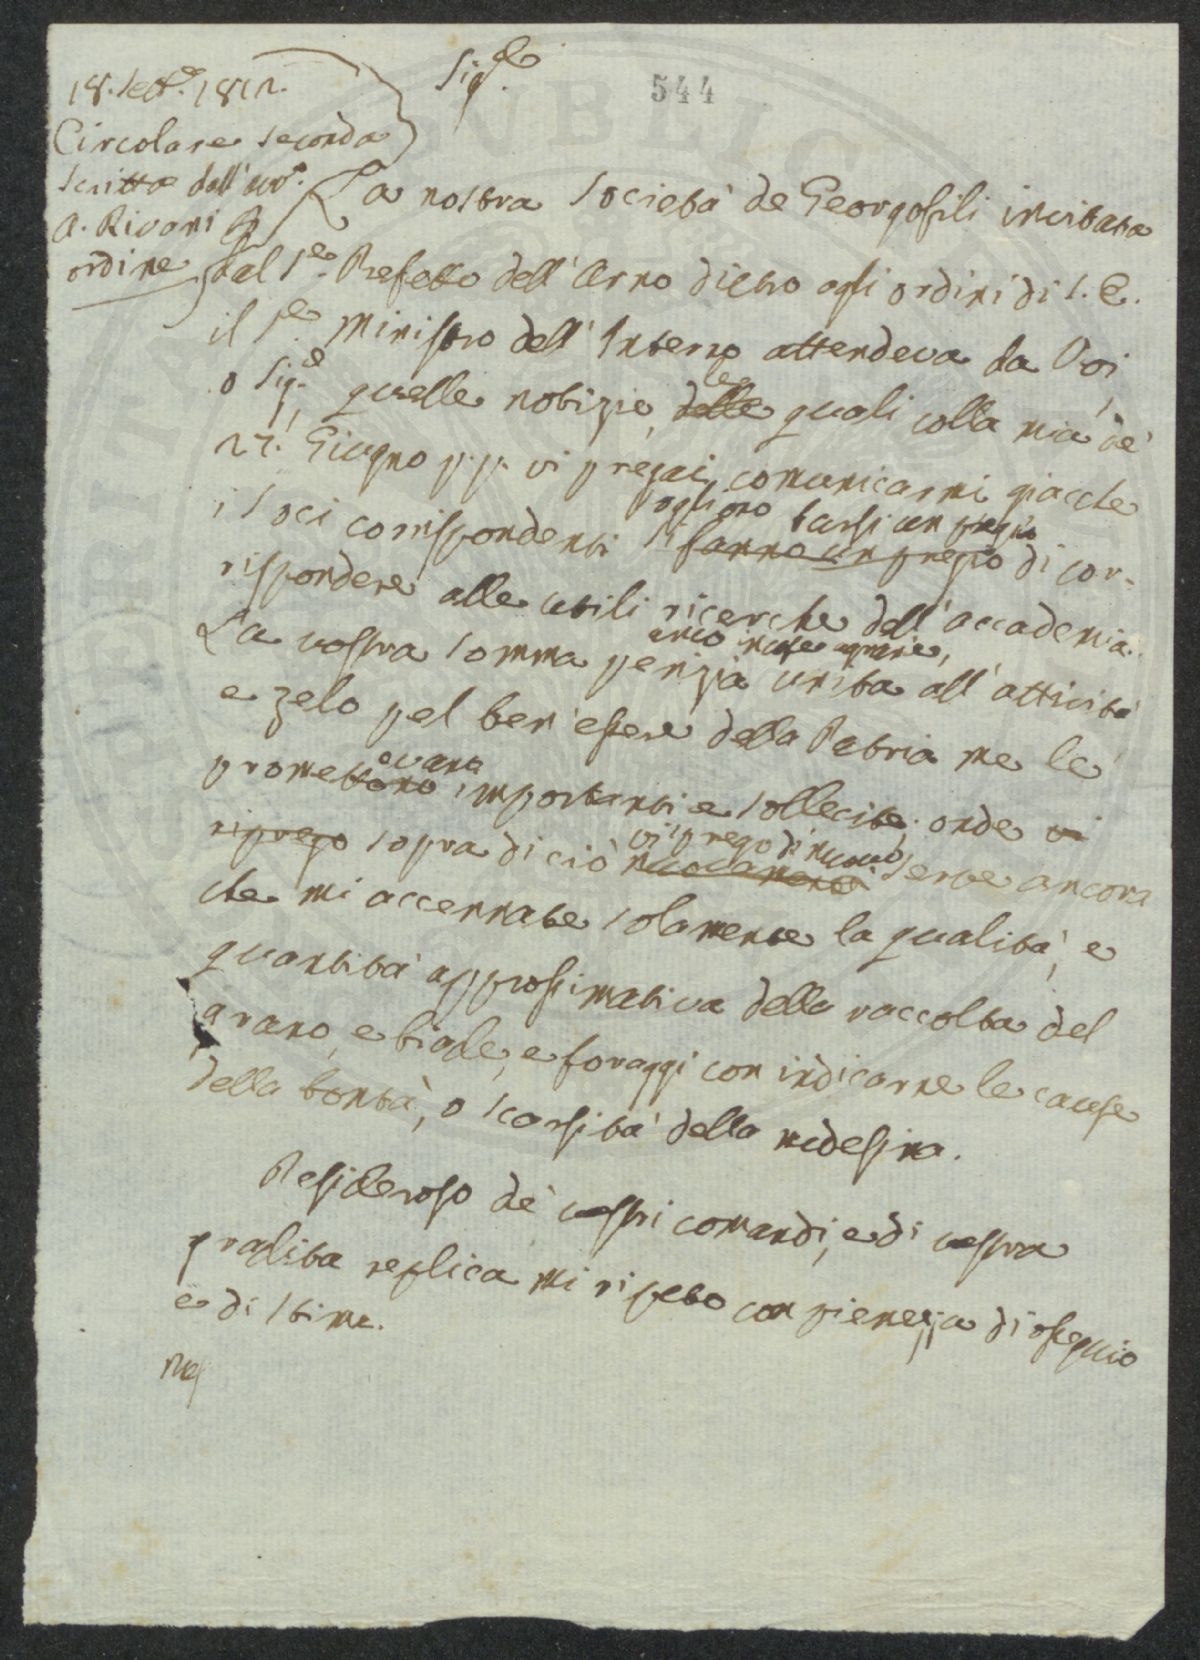 544
18. Sett.e 1812.
Circolare seconda
scritta dall'avv.o
A. Rivani
ordine
Sig.re
La nostra Società de Georgofili incitata
dal S.re Prefetto dell'Arno dietro agli ordini di S. E.
il S.re Ministro dell'Interno attendeva da Voi,
o Sig.re quelle notizie, delle le quali colla mia de'
27. Giugno p.p. vi pregai comunicarmi giacche
i Soci corrispondenti si fanno un pregio di cor-
rispondere alle utili ricerche dell'accademia.
La vostra somma perizia unita all'attività
e zelo pel ben'essere della Patria me le
promettono evano importanti e sollecite, onde vi
riprego sopra di ciò nuovamente vi prego di nuovo serve ancora
che mi accennate solamente la qualità, e
quantità approssimativa della raccolta del
grano, e biade, e foraggi con indicarne le cause
della bontà, o scarsità della medesima.
Desideroso de' vostri comandi, e di vostra
pregiata replica mi ripeto con pienezza di ossequio
e di stima.